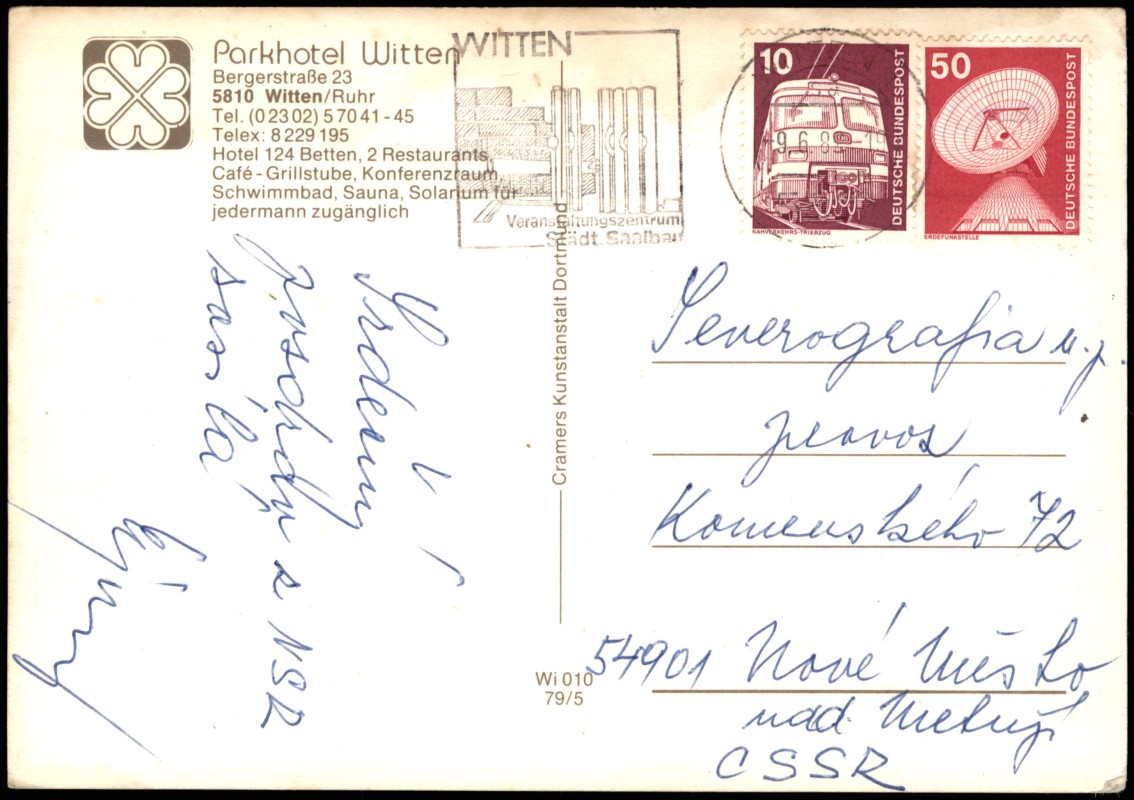 Parkhotel Witten
Bergerstraße 23
5810 Witten/Ruhr
Tel. (02302) 57041-45
Telex: 8229195
Hotel 124 Betten, 2 Restaurants,
Café-Grillstube, Konferenzraum,
Schwimmbad, Sauna, Solarium für
jedermann zugänglich
WITTEN
Veranstaltungszentrum
Städt. Saalbau
10
DEUTSCHE BUNDESPOST
NAHVERKEHRS-TRIEBZUG
50
DEUTSCHE BUNDESPOST
ERDEFUNKSTELLE
Srdečný
pozdrav z NSR
Cramers Kunstanstalt Dortmund
Wi 010
79/5
Severografia n.p.
provoz
Komenského 72
54901 Nové Město
nad Metují
CSSR